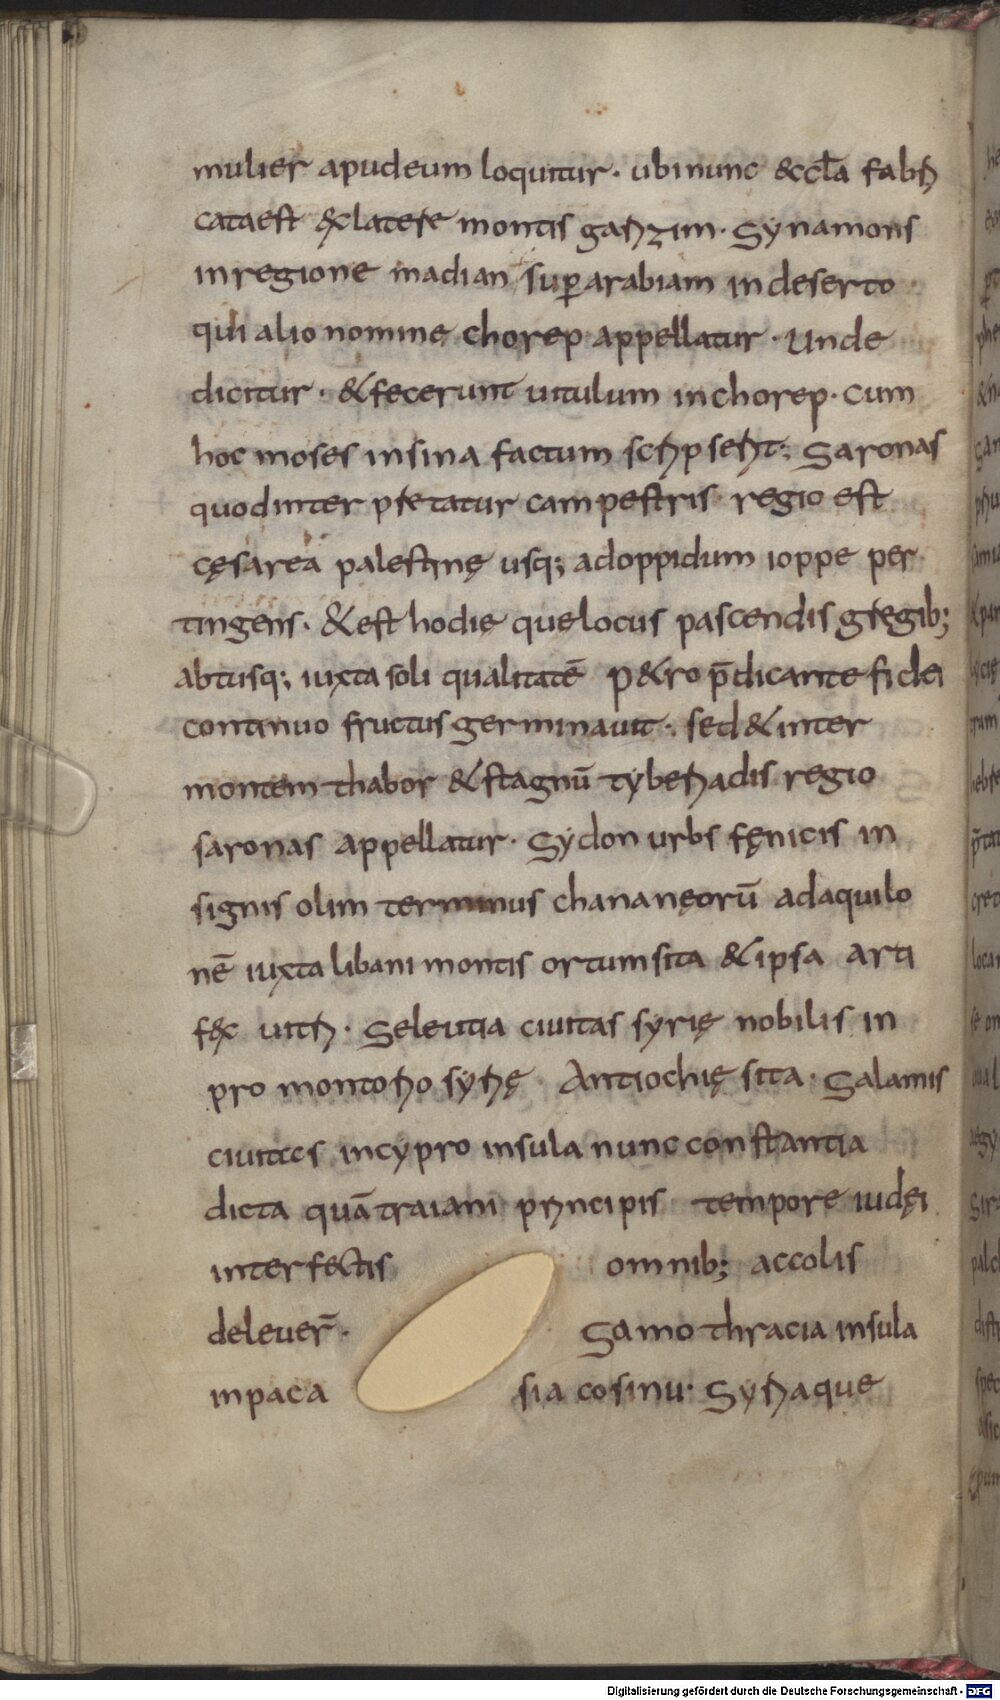 mulier apudeum loquitur· ubinunc &ccl̄a fabri
cataest & exlatere montis garizim· Synamons
inregione madian sup̱arabiam indeserto
qui alio nomine chorep appellatur· Unde
dicitur· &fecerunt uitulum inchorep· cum
hoc moses insina factum scripserit; Saronas
quodinter pretatur campestris regio est
cęsarea palestinę usq; adoppidum ioppe per
tingens· &est hodię quelocus pascendis gregib;
abtusq; iuxta soli qualitatē p&ro p̄dicante fidei
continuo fructus germinauit· sed &inter
montem thabor &stagnū tyberiadis regio
saronas appellatur· Sydon urbs fęnicis in
signis olim terminus chananęorū adaquilo
nē iuxta libani montis ortum sita &ipsa arti
fex uitri· Seleutia ciuitas syrię nobilis in
pro montorio syrię Antiochię sita· Salamis
ciuitas incypro insula nunc constantia
dicta quā traiani principis tempore iudęi
interfectis omnib; accolis
deleuer̄· Samo thracia insula
inpaca sia cosinu· Syria que
Digitalisierung gefördert durch die Deutsche Forschungsgemeinschaft - DFG